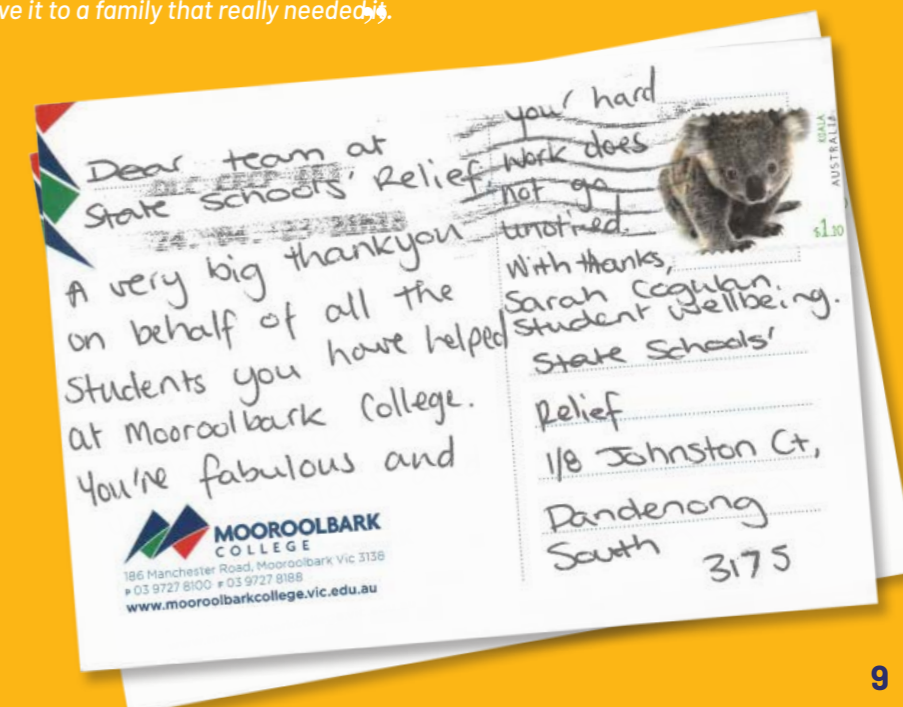 ve it to a family that really needed it.
Dear team at
State Schools' Relief,
A very big thankyou
on behalf of all the
Students you have helped
at Mooroolbark College.
You're fabulous and
your hard
work does
not go
unotired.
With thanks,
Sarah Coghlan.
Student Wellbeing.
KOALA
AUSTRALIA
$1.10
State Schools'
Relief
1/8 Johnston Ct,
Dandenong
South 3175
MOOROOLBARK
COLLEGE
186 Manchester Road, Mooroolbark Vic 3138
P 03 9727 8100 F 03 9727 8188
www.mooroolbarkcollege.vic.edu.au
9